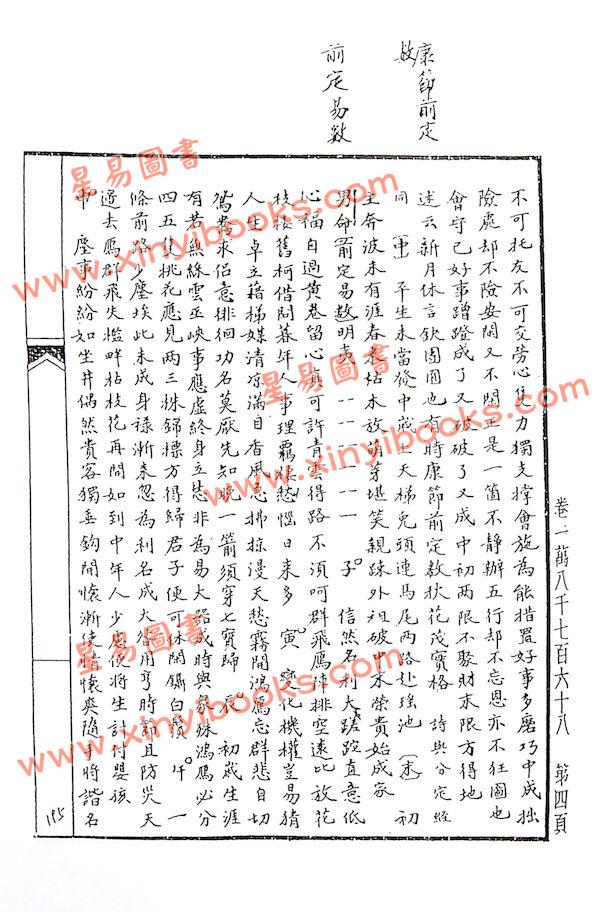 康節前定
數
前定易數
卷一萬八千七百六十八 第四頁
不可托友不可交勞心隻力獨支撐會施為能措置好事多磨巧中成拙
險處却不險安閑又不閑正是一箇不靜辦五行却不忘恩亦不狂圖也
會守已好事蹭蹬成了又破破了又成中初兩限不聚財末限方得地
述云新月休言欽團圓也有時康節前定數狀花茂實格 詩與分定經
同 平生未當發中歲上天梯兔頭連馬尾兩路赴瑤池 末 初
主奔波未有涯春來枯木放萌芽堪笑親踈外祖破中末榮貴始成家
男命前定易數明夷 子 信然名利大蹉跎直意低
心福自過黄巷留心真可許青雲得路不須呵群飛鴈陣排空遠比放花
枝棲舊柯借問暮年人事理 愁惱日來多 寅 變化機權豈易猜
人生卓立藉梯媒清凉滿目香風急拂掠漫天愁霧開鴻鴈忘群悲自切
鴛鴦求侣意徘徊功名莫厭先知晚一箭須穿七寶歸 辰 初歲生涯
有若無絲雲巫峽事應虛終身立志非為易大器成時與象 鴻鴈必分
四五隻桃花應見兩三株錦標方得歸君子便可休閑鑷白鬚 午 一
條前路少塵埃此未成身祿漸來忽為利名成大 用亨時節且防災天
邊去鴈群飛失檻畔枯枝花再開如到中年人少 便將生計付嬰孩
申 塵事紛紛如坐井偶然貴客獨垂鈎開懷漸使情懷爽隨手將諧名
185
星易圖書
www.xinyibooks.com
星易圖書
www.xinyibooks.com
星易圖書
www.xinyibooks.com
星易圖書
www.xinyibooks.com